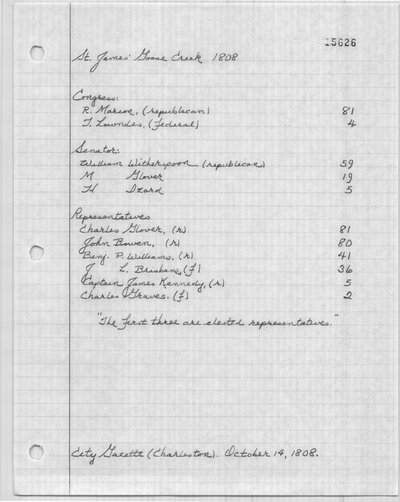 15626
St. James' Goose Creek 1808
Congress:
R. Marion, (republican) 81
T. Lowndes, (federal) 4
Senator:
William Witherspoon, (republican) 59
M Glover 19
H Izard 5
Representatives
Charles Glover, (r) 81
John Bowen, (r) 80
Benj. P. Williams, (r) 41
J L. Brisbane, (f) 36
Captain James Kennedy, (r) 5
Charles Graves, (f) 2
"The first three are elected representatives."
City Gazette (Charleston). October 14, 1808.